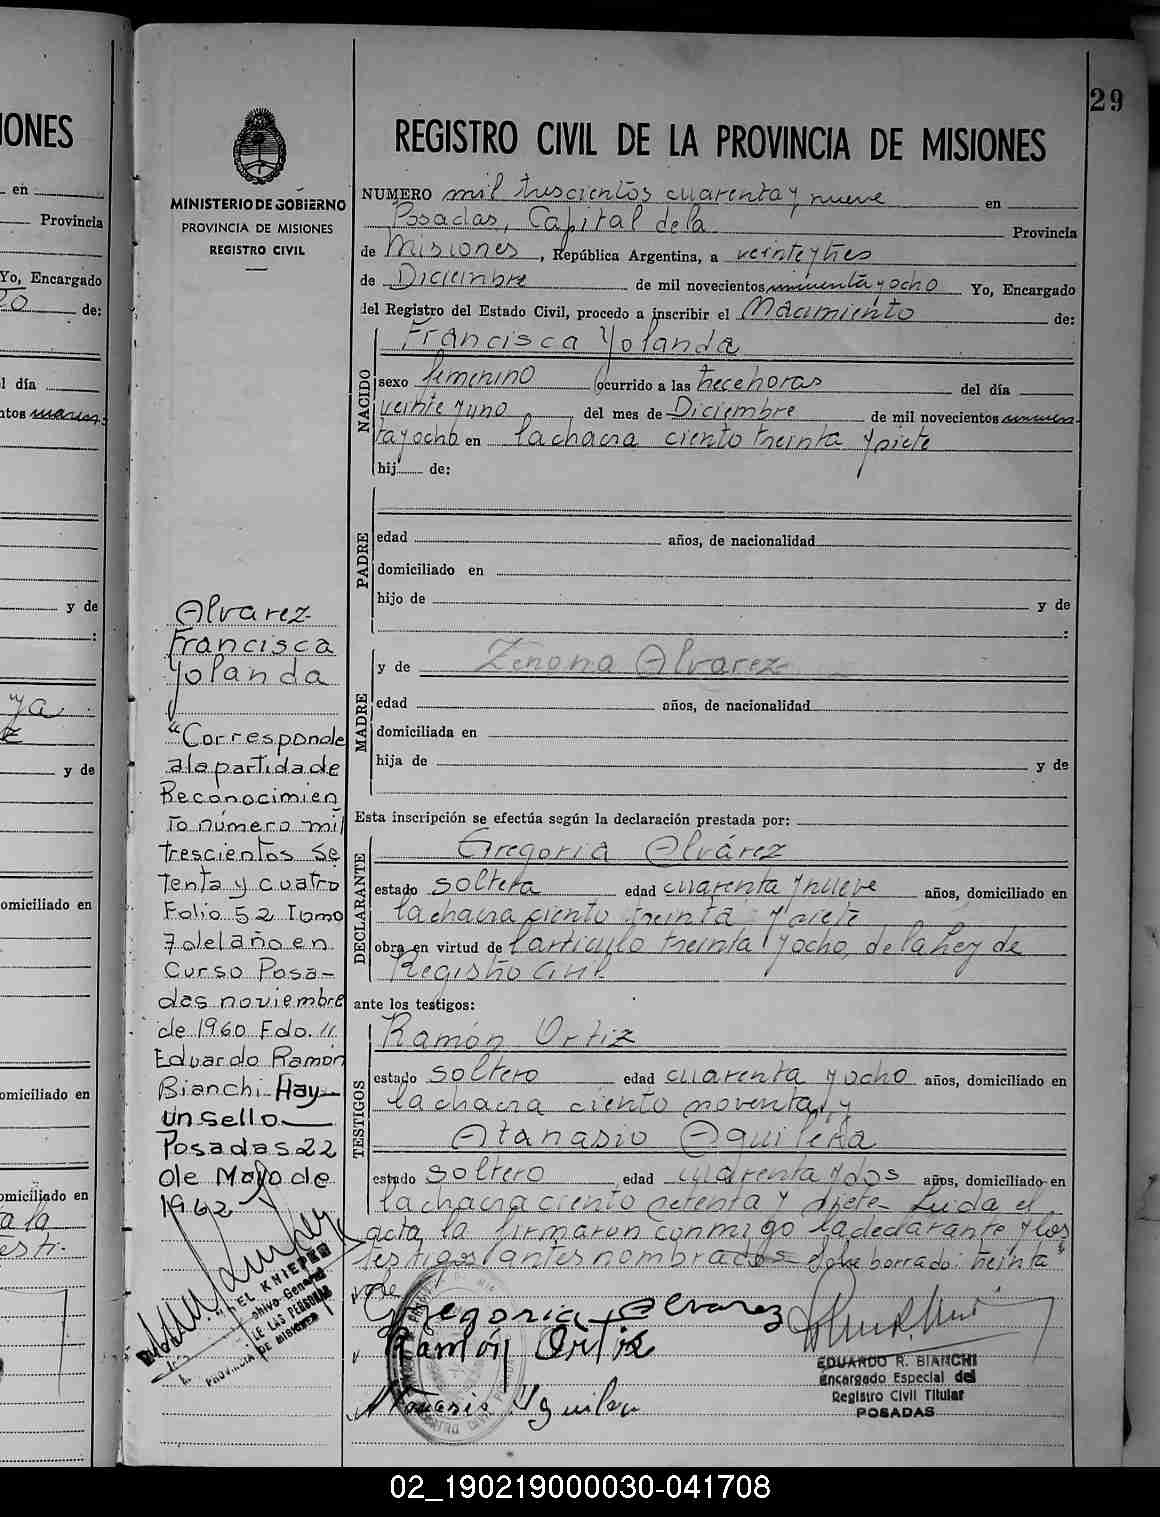 IONES
en
Provincia
Yo, Encargado
de:
l día
ntos
y de
:
ya
z
y de
omiciliado en
omiciliado en
omiciliado en
a la
esti-
29
MINISTERIO DE GOBIERNO
PROVINCIA DE MISIONES
REGISTRO CIVIL
Alvarez
Francisca
Yolanda
"Corresponde
a la partida de
Reconocimien
to número mil
trescientos se
tenta y cuatro
Folio 52 Tomo
7 del año en
Curso Posa-
das noviembre
de 1960 Fdo. //
Eduardo Ramón
Bianchi Hay
un sello
Posadas 22
de Mayo de
1962
EL KNIEPER
chivo General
DE LAS PERSONAS
PROVINCIA DE MISIONES
REGISTRO CIVIL DE LA PROVINCIA DE MISIONES
NUMERO mil trescientos cuarenta y nueve en
Posadas, Capital de la Provincia
de Misiones, República Argentina, a veinte y tres
de Diciembre de mil novecientos cincuenta y ocho Yo, Encargado
del Registro del Estado Civil, procedo a inscribir el Nacimiento de:
NACIDO
Francisca Yolanda
sexo femenino ocurrido a las trece horas del día
veinte y uno del mes de Diciembre de mil novecientos cincuen-
ta y ocho en la chacra ciento treinta y siete
hij de:
PADRE
edad años, de nacionalidad
domiciliado en
hijo de y de
:
MADRE
y de Zenona Alvarez
edad años, de nacionalidad
domiciliada en
hija de y de
Esta inscripción se efectúa según la declaración prestada por:
DECLARANTE
Gregoria Alvárez
estado soltera edad cuarenta y nueve años, domiciliado en
la chacra ciento treinta y siete
obra en virtud de l artículo treinta y ocho de la Ley de
Registro Civil
ante los testigos:
TESTIGOS
Ramón Ortiz
estado soltero edad cuarenta y ocho años, domiciliado en
la chacra ciento noventa y
Atanasio Aguilera
estado soltero edad cuarenta y dos años, domiciliado en
la chacra ciento setenta y siete Leida el
acta la firmaron conmigo la declarante y los
testigos antes nombrados Sobre borrado: treinta"
vale
Gregoria Alvarez
Ramón Ortiz
EDUARDO R. BIANCHI
Encargado Especial del
Registro Civil Titular
POSADAS
02_190219000030-041708